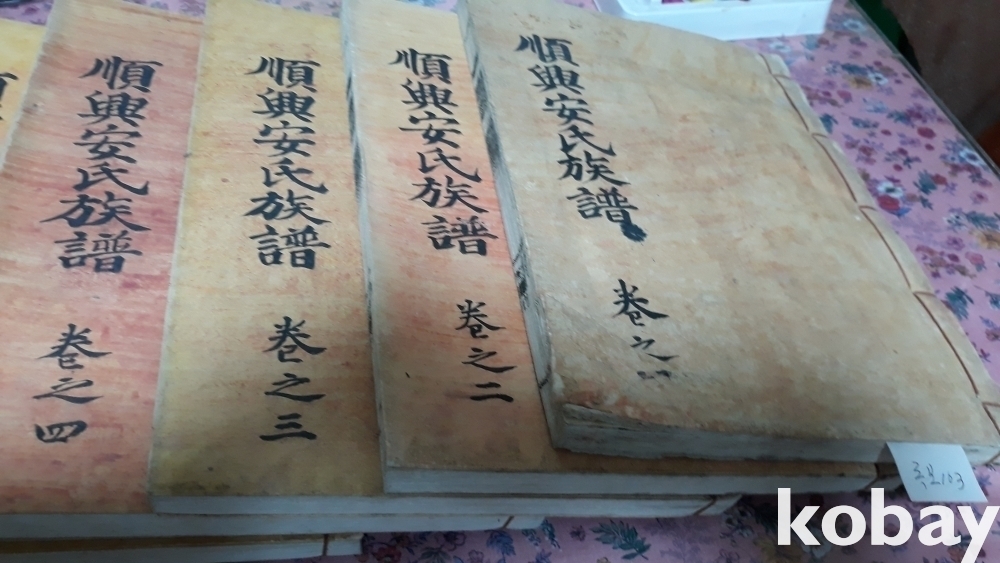 順興安氏族譜
卷之一
順興安氏族譜
卷之二
順興安氏族譜
卷之三
順興安氏族譜
卷之四
족보103
kobay